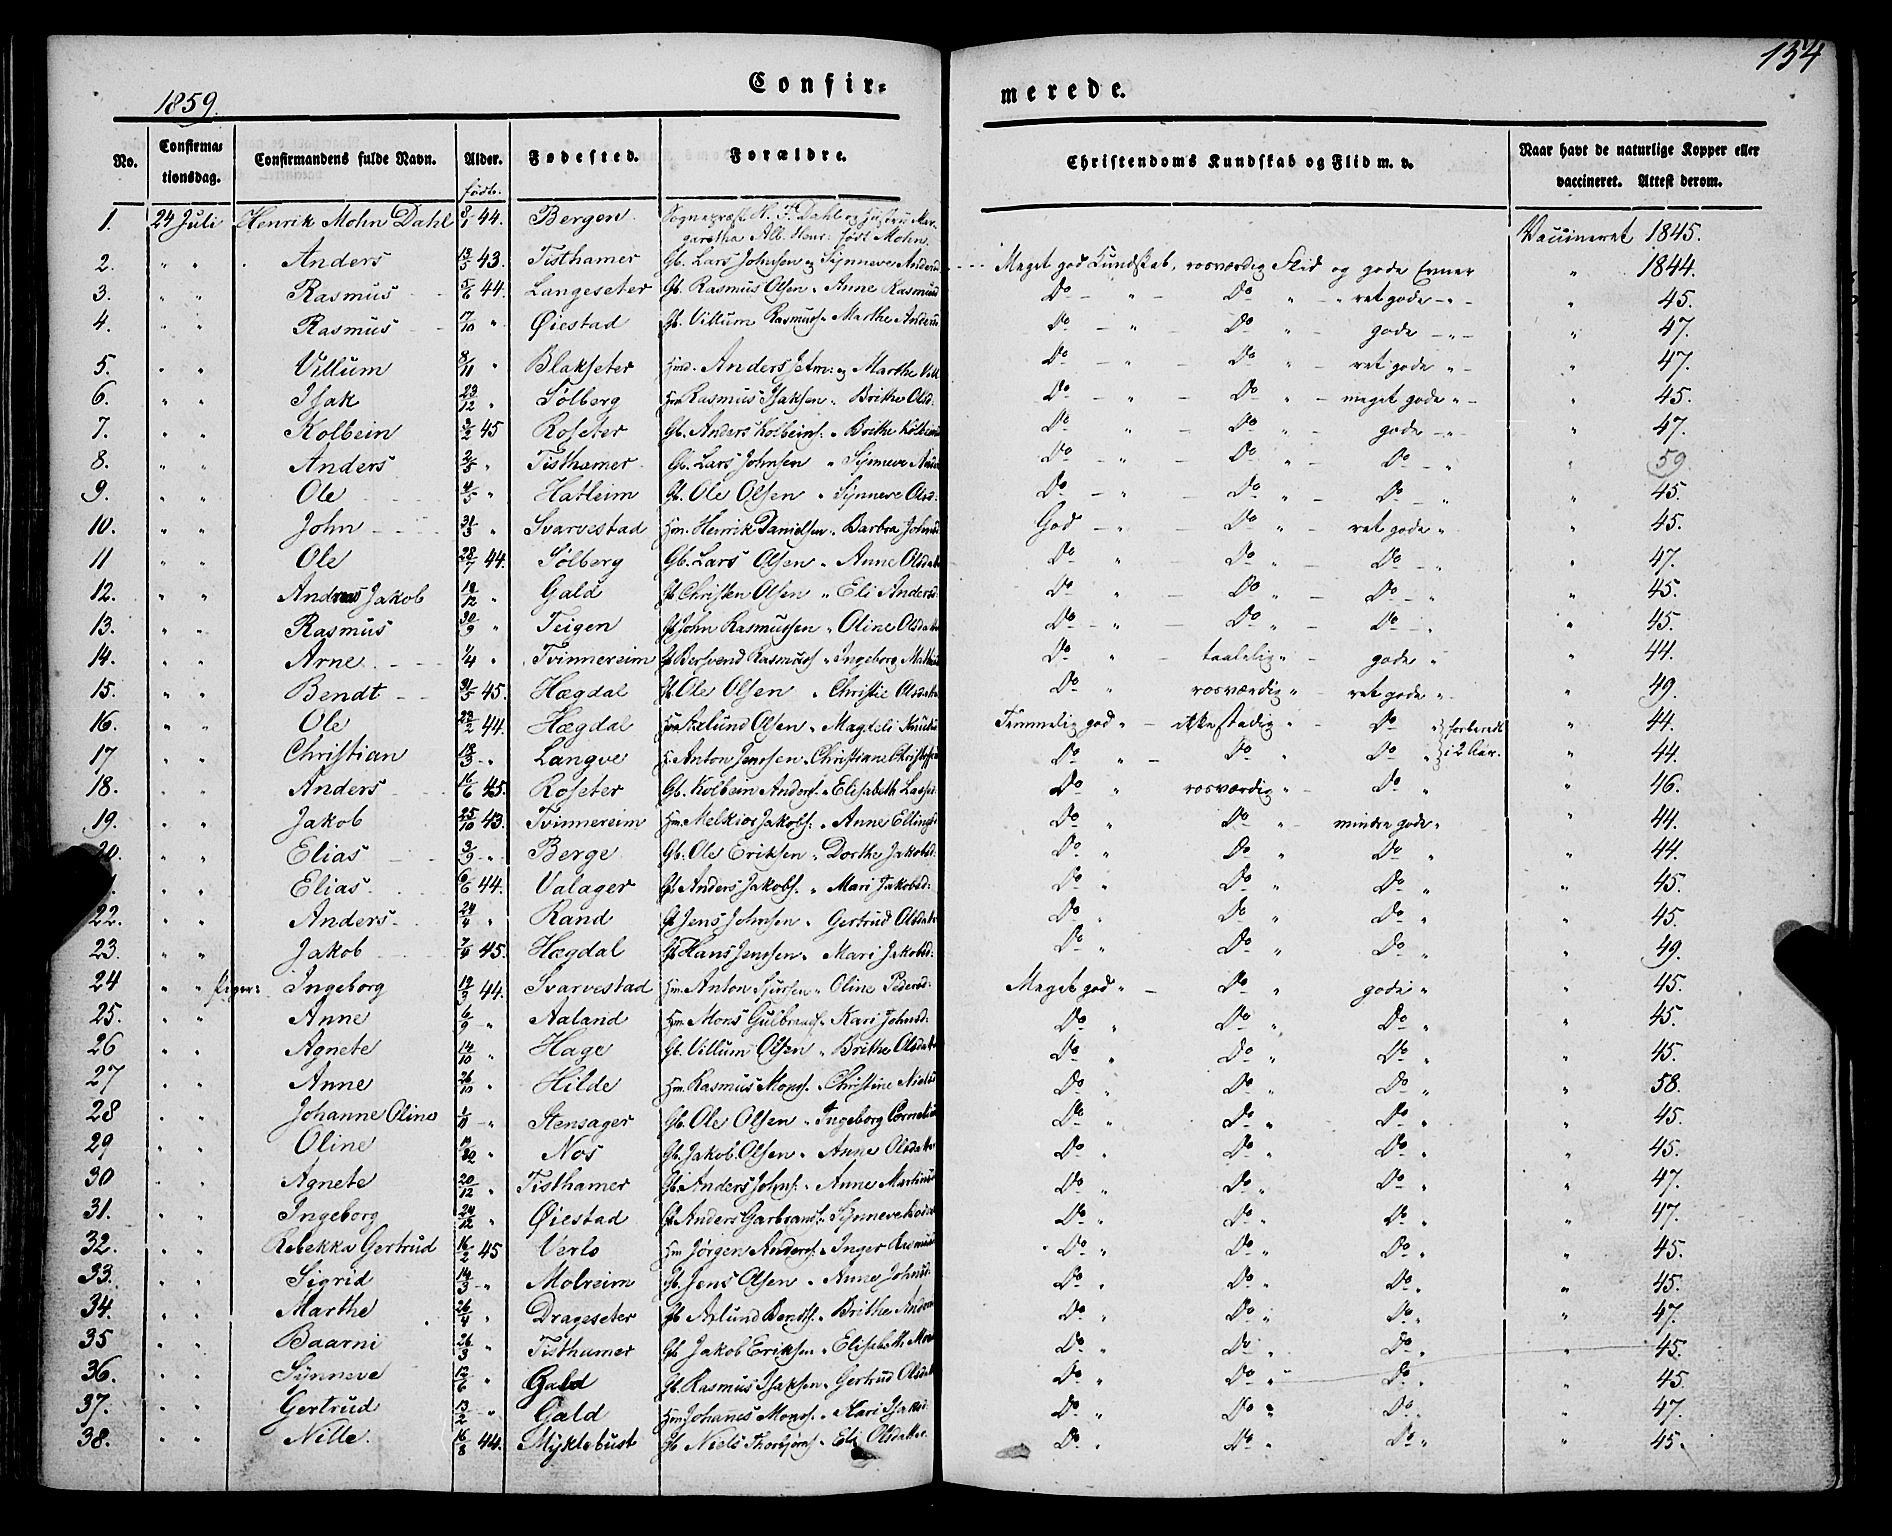 154
Confir- merede.
1859.
No. Confirma- tionsdag. Confirmandens fulde Navn. Alder. Fødested. Forældre. Christendoms Kundskab og Flid m. v. Naar havt de naturlige Kopper eller vaccineret. Attest derom.
født.
1. 24 Juli Henrik Mohn Dahl 8/1 44. Bergen. Sognepræst N. F. Dahl og Hustru Mar- Vaccineret 1845.
garetha Alb. Henr: født Mohn.
2. " " Anders 13/5 43. Tisthamer Gb. Lars Johnsen og Synneve Andersd Meget god Kundskab, rosværdig Flid og gode Evner " 1844.
3. " " Rasmus 5/6 44. Langeseter Gb. Rasmus Olsen " Anne Rasmusd Do " Do " " ret gode " " 45.
4. " " Rasmus 17/10 " Øiestad Gb. Villum Rasmuss " Marthe Andersd Do " Do " gode " " 47.
5. " " Villum 8/11 " Blakseter Anders og Marthe Vill Do " Do " ret gode " " 47.
6. " " Isak 23/12 " Sølberg Hm Rasmus Isaksen " Brithe Olsd: Do " Do " meget gode " " 45.
7. " " Kolbein 3/2 45 Roseter Gb. Anders Kolbeins: " Brithe Kolbeinsd Do " Do " gode " " 47.
8. " " Anders 2/5 " Tisthamer Gb. Lars Johnsen " Synneve Andersd Do " Do " Do " " 59.
9. " " Ole 4/5 " Hatleim Gb. Ole Olsen " Synneve Olsd: Do " Do " Do " " 45.
10. " " John 31/3 " Svarvestad Hm. Henrik Danielsen " Barbra Johnsd God " Do " ret gode " " 45.
11 " " Ole 28/7 44. Sølberg Gb. Lars Olsen " Anne Olsdatt Do " Do " Do " " 47.
12. " " Andreas Jakob 18/12 " Gald Gb Christen Olsen " Eli Andersd: Do " Do " Do " " 45.
13. " " Rasmus 30/9 " Teigen Gb John Rasmussen " Oline Olsdatt Do " Do " Do " " 45.
14. " " Arne 1/4 " Tvinnereim Gb Bersvend Rasmuss " Ingeborg Mathias Do " taalelig " gode " " 44.
15. " " Bendt 31/5 45. Hægdal Gb. Ole Olsen " Christie Olsdatt Do " rosværdig " ret gode " " 49.
16. " " Ole 23/2 44. Hægdal Hm Aslund Olsen " Magdeli Knuds Temmelig god " ikke stadig " Do " forberedt " 44.
17 " " Christian 18/3 " Langve Anton Jenssen " Christiane Christoffers Do " Do " Do " i 2 Aar. " 44.
18. " " Anders 16/6 45. Roseter Gb. Kolbein Anders: " Elisabeth Lasse Do " rosværdig " Do " " 46.
19. " " Jakob 25/10 43. Tvinnereim Hm. Melkior Jakobs: " Anne Ellings Do " Do " mindre gode " " 44.
20. " " Elias 3/9 " Berge Gb. Ole Eriksen " Dorthe Jakobsd: Do " Do " Do " " 44.
" " Elias 6/6 44. Valager Gb. Anders Jakobs: " Mari Jakobsd: Do " Do " Do " " 45.
22. " " Anders 24/4 " Rand Gb Jens Johnsen " Gertrud Olsdatt Do " Do " Do " " 45.
23. " " Jakob 7/4 45. Hægdal Gb Hans Jenssen " Mari Jakobsd: Do " Do " Do " " 49.
24 " " Piger: Ingeborg 12/3 44. Svarvestad Hm. Anton Sjursen " Oline Pedersd: Meget god " Do " gode " " 45.
25. " " Anne 6/9 " Aaland Hm. Mons Gulbrands " Kari Johnsd: Do " Do " Do " " 45.
26 " " Agnete 14/10 " Hage Gb. Villum Olsen " Brithe Olsdatt Do " Do " Do " " 45.
27 " " Anne 26/10 " Hilde Hm. Rasmus Mons: " Christine Niels Do " Do " Do " " 58.
28 " " Johanne Oline 1/11 " Stensager Gb. Ole Olsen " Ingeborg Cornelius Do " Do " Do " " 45.
29 " " Oline " Nos Gb. Jakob Olsen " Anne Olsdatter Do " Do " Do " " 45.
30 " " Agnete 20/12 " Tisthamer Gb. Anders Johns: " Anne Martinus Do " Do " Do " " 47.
31. " " Ingeborg 24/12 " Øiestad Gb. Anders Garbrands " Synneve Do " Do " Do " " 47.
32. " " Rebekka Gertrud 16/2 45 Verlo Hm Jørgen Anders: " Inger Rasmus Do " Do " Do " " 45.
33. " " Sigrid 14/3 " Molreim Gb. Jens Olsen " Anne Johnsd: Do " Do " Do " " 45.
34. " " Marthe 26/4 " Drageseter Gb Aslund Bendts: " Brithe Anders Do " Do " Do " " 47.
35 " " Baarni 26/3 " Tisthamer Gb Jakob Eriksen " Elisabeth Do " Do " Do " " 45.
36. " " Synneve 12/6 " Gald Gb. Rasmus Isaksen " Gertrud Olsdatt Do " Do " Do " " 45.
37. " " Gertrud 13/2 " Gald Hm Johannes Mons: " Kari Isaks: Do " Do " Do " " 47.
38. " " Nille 16/8 44. Myklebust Gb Niels Thorbjørns: " Eli Olsdatter. Do " Do " Do " " 45.